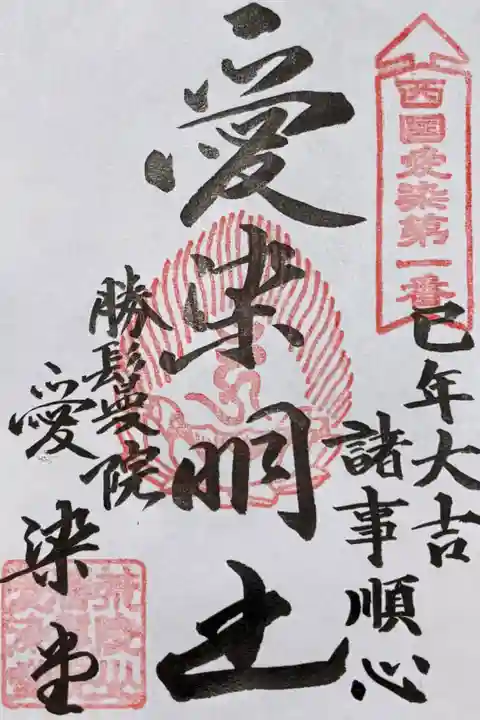 西國愛染第一番
巳年大吉
諸事順心
愛染明王
勝鬘院
愛染堂